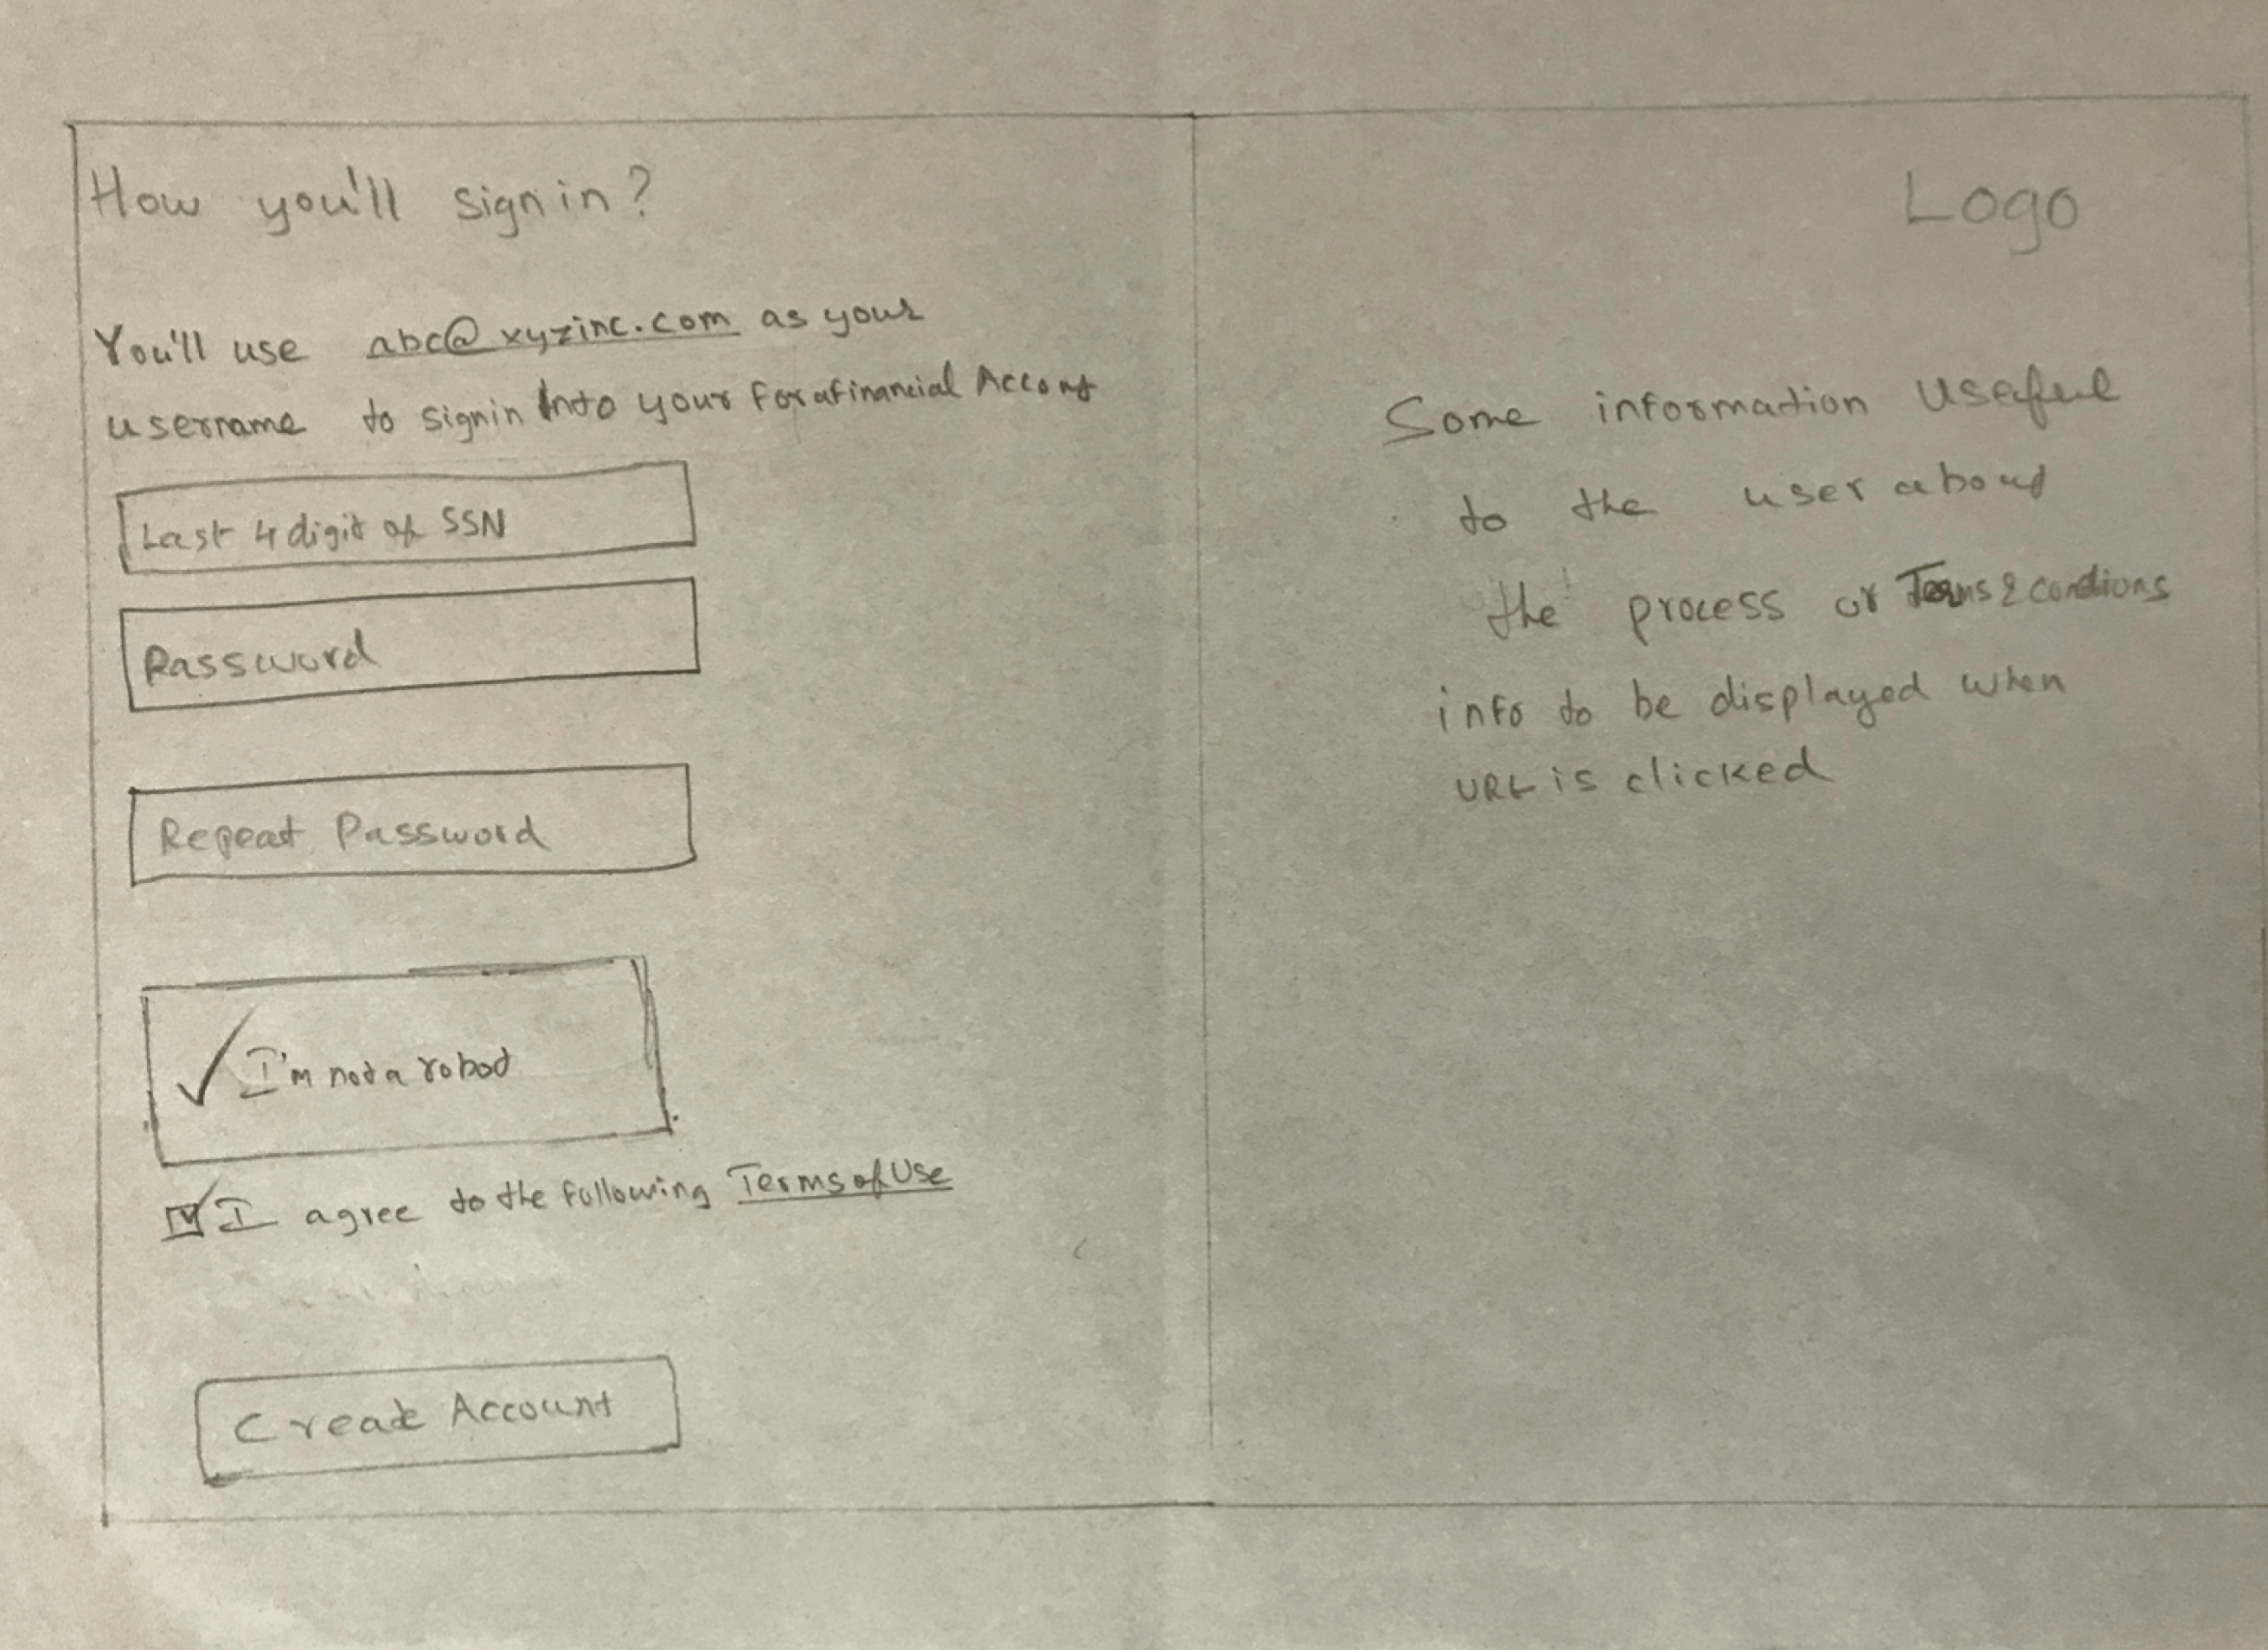 How you'll sign in?
You'll use abc@xyzinc.com as your
username to signin Into your Forafinancial Account
Last 4 digit of SSN
Password
Repeat Password
✓ I'm not a robot
☑ I agree to the following Terms of Use
Create Account
Logo
Some information Useful
to the user about
the process or Terms & condtions
info to be displayed when
URL is clicked